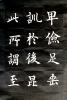 卑儉足垂
訓於後昆
此所謂至